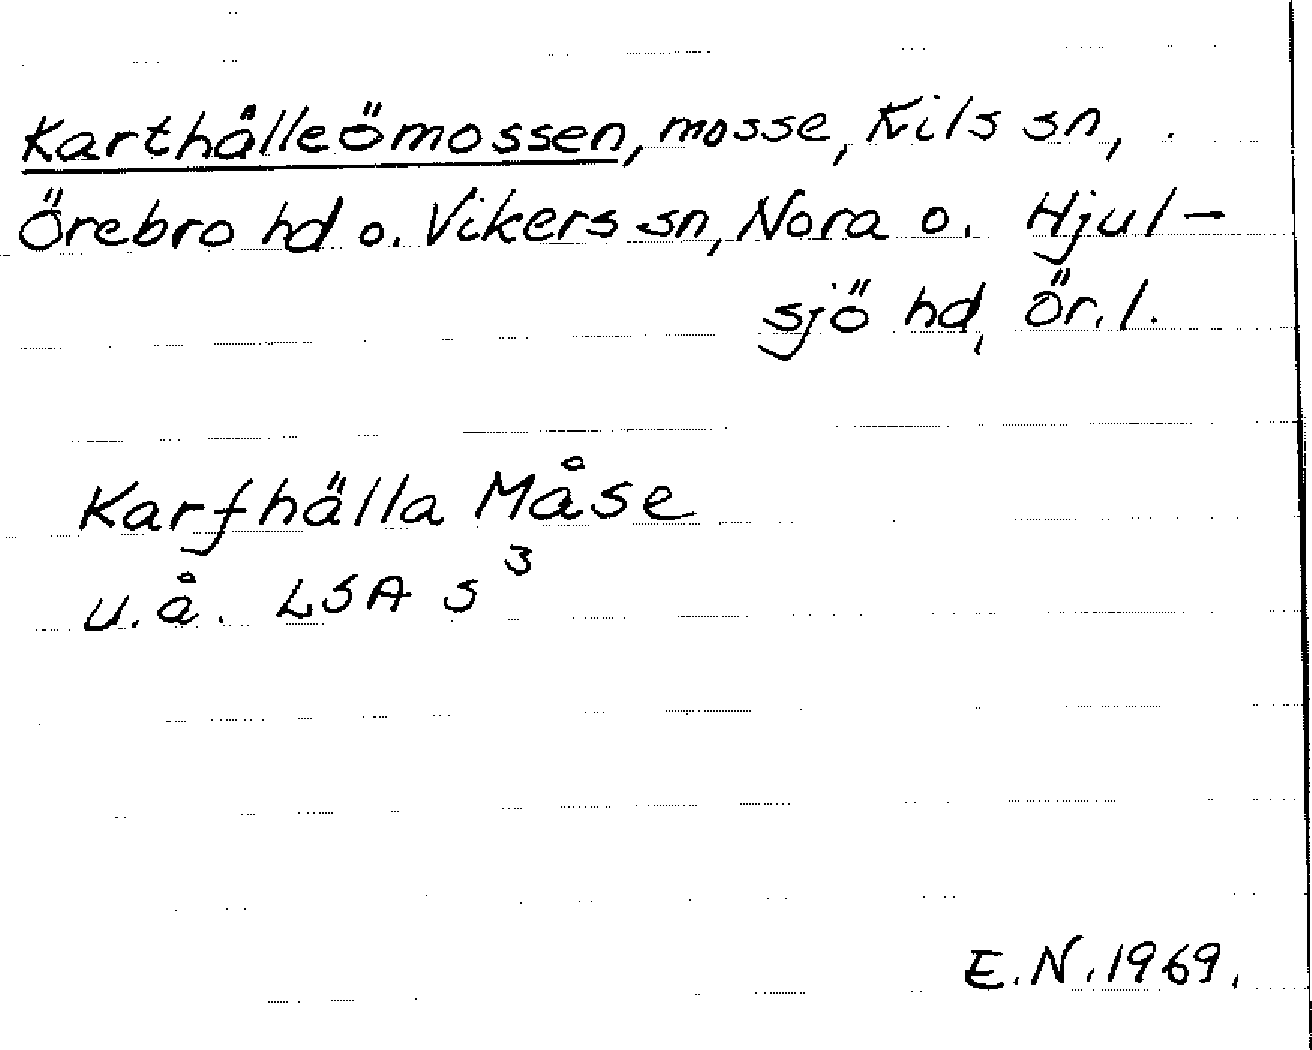 Karthålleömossen, mosse, Kils sn,
Örebro hd o. Vikers sn, Nora o. Hjul-
sjö hd, Ör. l.
Karfhälla Måse
u.å. LSA S³
E.N. 1969.